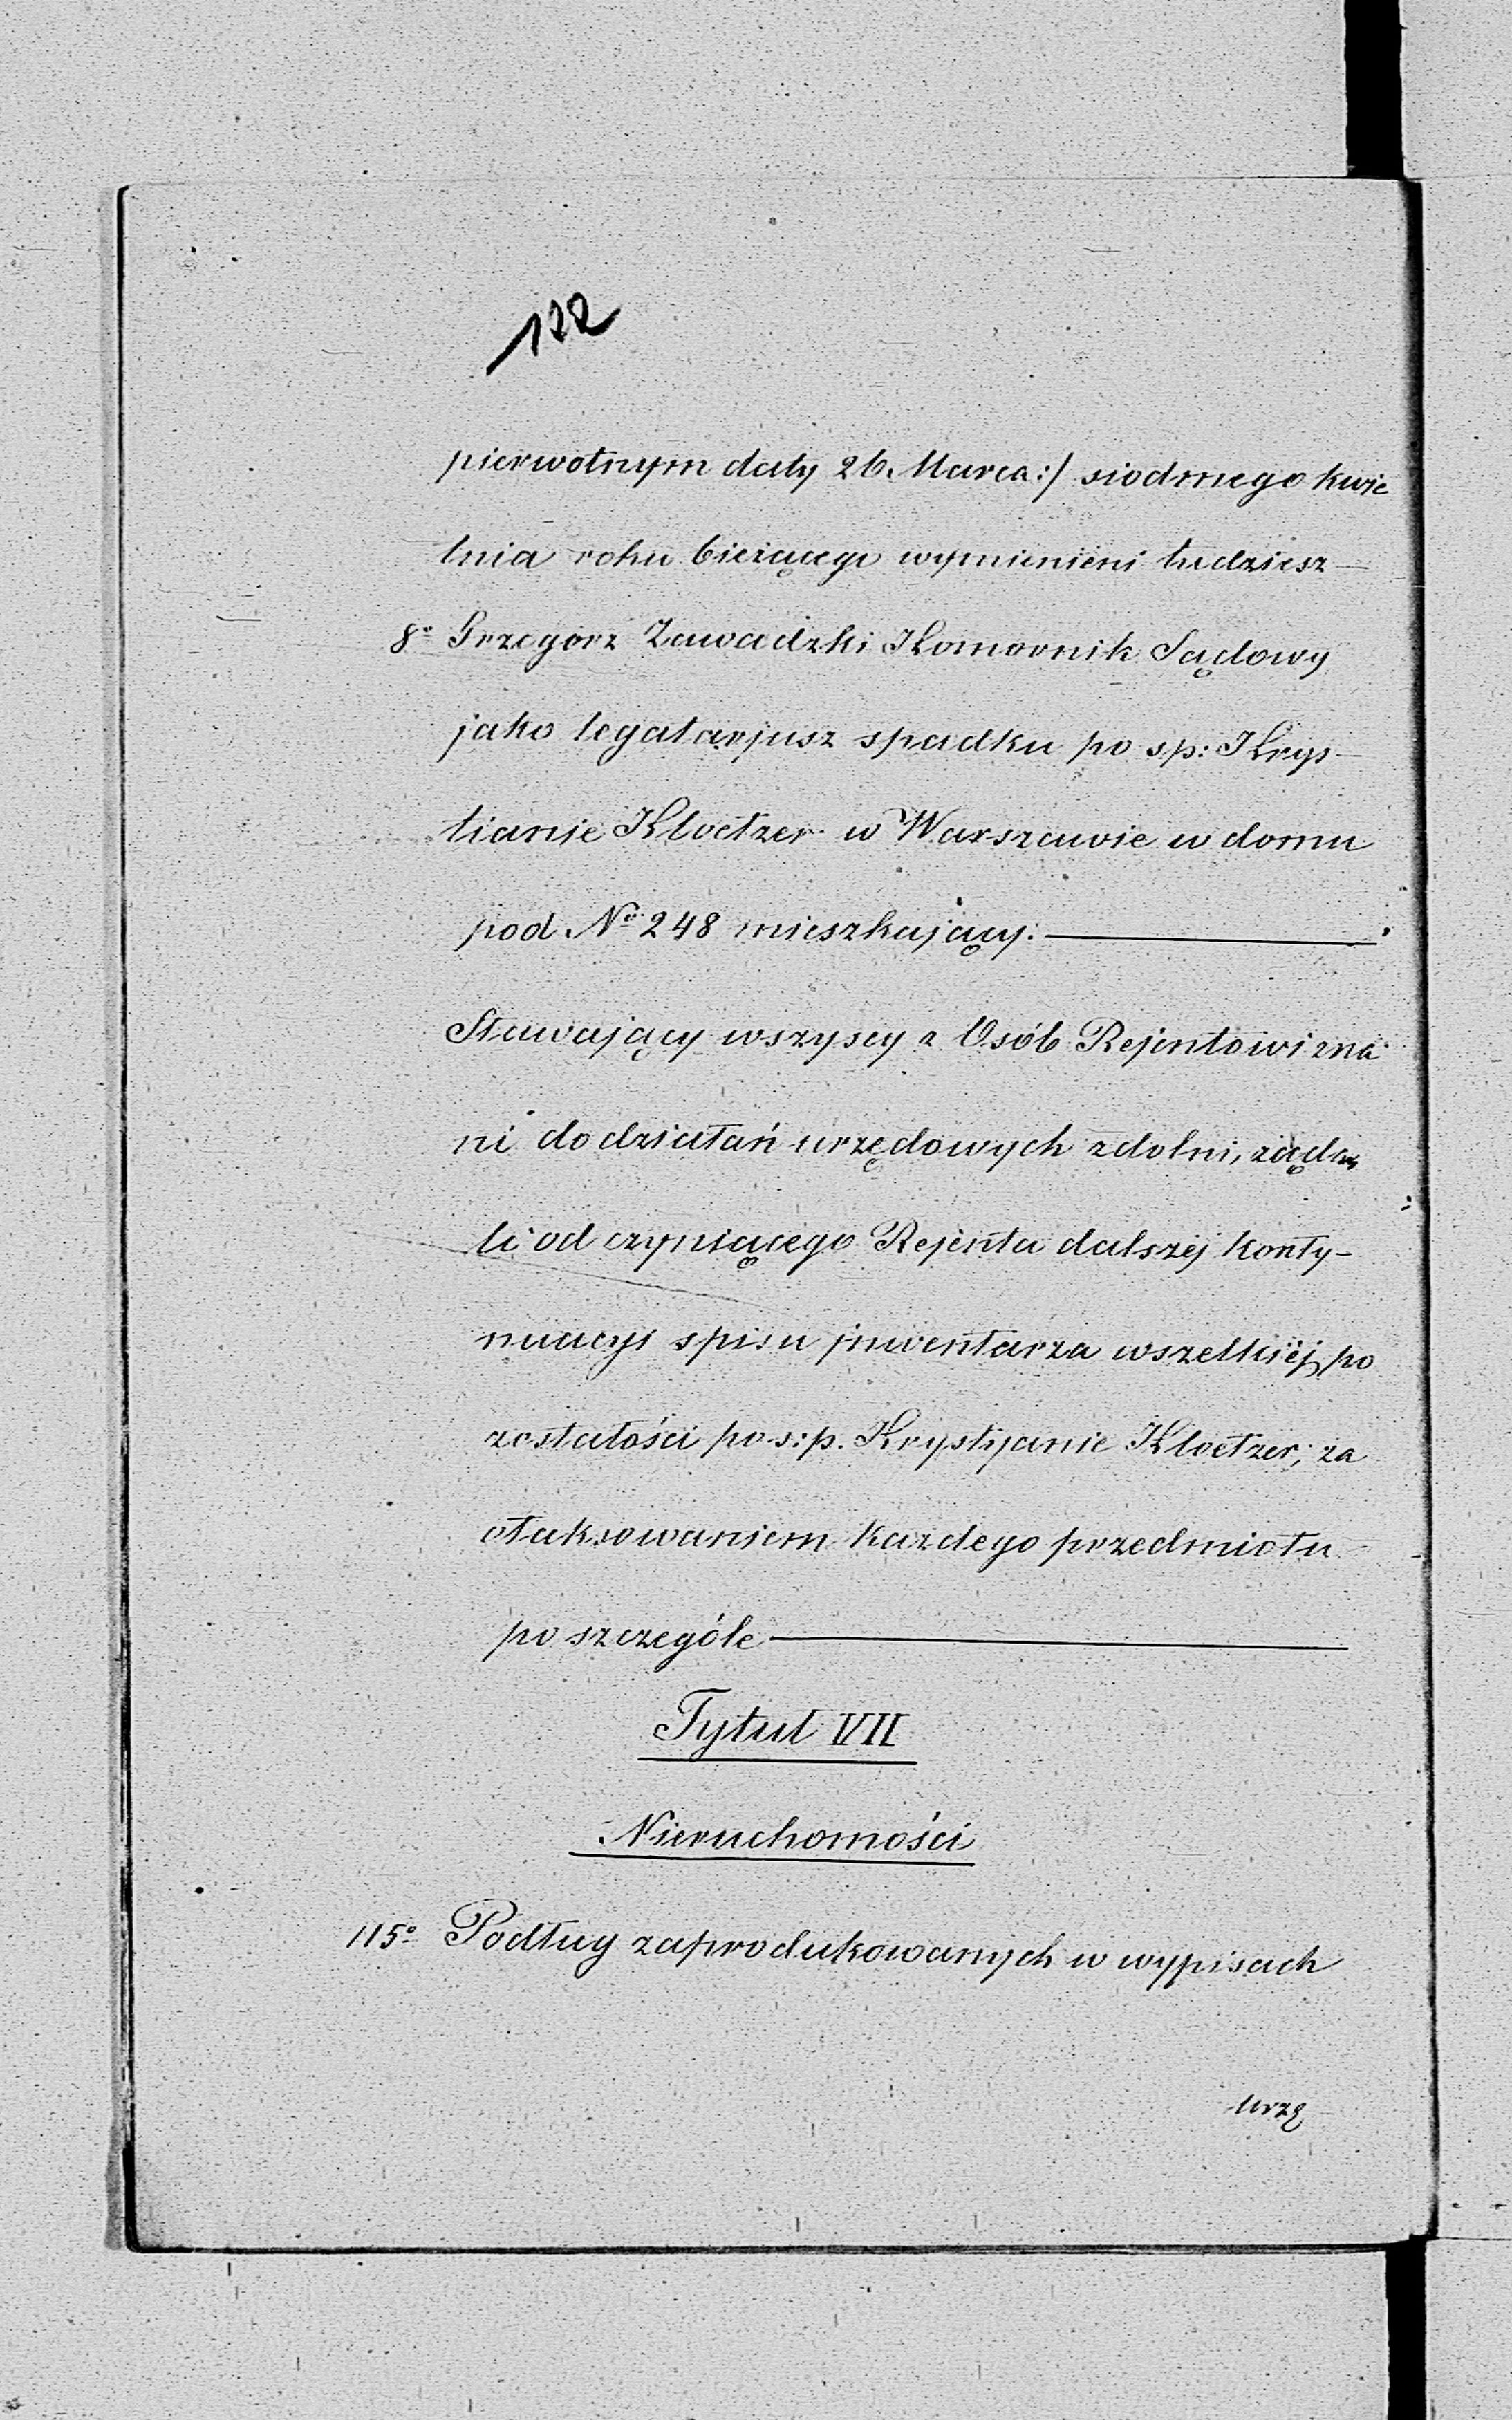 122
pierwotnym daty 26. Marca:/ siodmego kwie
tnia roku bieżącego wymienieni tudziesz
8° Grzegorz Zawadzki Komornik Sądowy
jako legatarjusz spadku po sp: Krys-
tianie Kloetzer w Warszawie w domu
pod N° 248 mieszkający.
Stawający wszyscy z Osób Rejentowi zna
ni do działań urzędowych zdolni, żąda
li od czyniącego Rejenta dalszéj konty-
nuacyi spisu jnwentarza wszelkiéj po
zostałości po s:p. Krystyanie Kloetzer, za
otaksowaniem każdego przedmiotu
po szczególe
Tytuł VII
Nieruchomości
115° Podług zaprodukowanych w wypisach
urzę